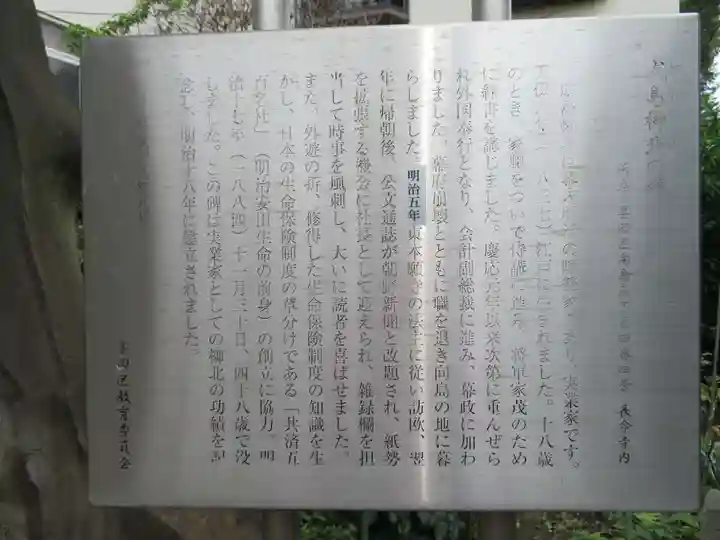 成島柳北の碑
所在 墨田区向島 長命寺内
実業家です。
江戸に生まれました。十八歳
のとき、家職をついで侍講に進み、将軍家茂のため
に経書を講じました。慶応元年以来次第に重んぜら
れ外国奉行となり、会計副総裁に進み、幕政に加わ
りました。幕府崩壊とともに職を退き向島の地に暮
らしました。明治五年東本願寺の法主に従い訪欧、翌
年に帰朝後、公文通誌が朝野新聞と改題され、紙勢
を拡張する機会に社長として迎えられ、雑録欄を担
当して時事を風刺し、大いに読者を喜ばせました。
また、外遊の折、修得した生命保険制度の知識を生
かし、日本の生命保険制度の草分けである「共済五
百名社」（明治安田生命の前身）の創立に協力。明
治十七年（一八八四）十一月三十日、四十八歳で没
しました。この碑は実業家としての柳北の功績を記
念し、明治十八年に建立されました。
墨田区教育委員会